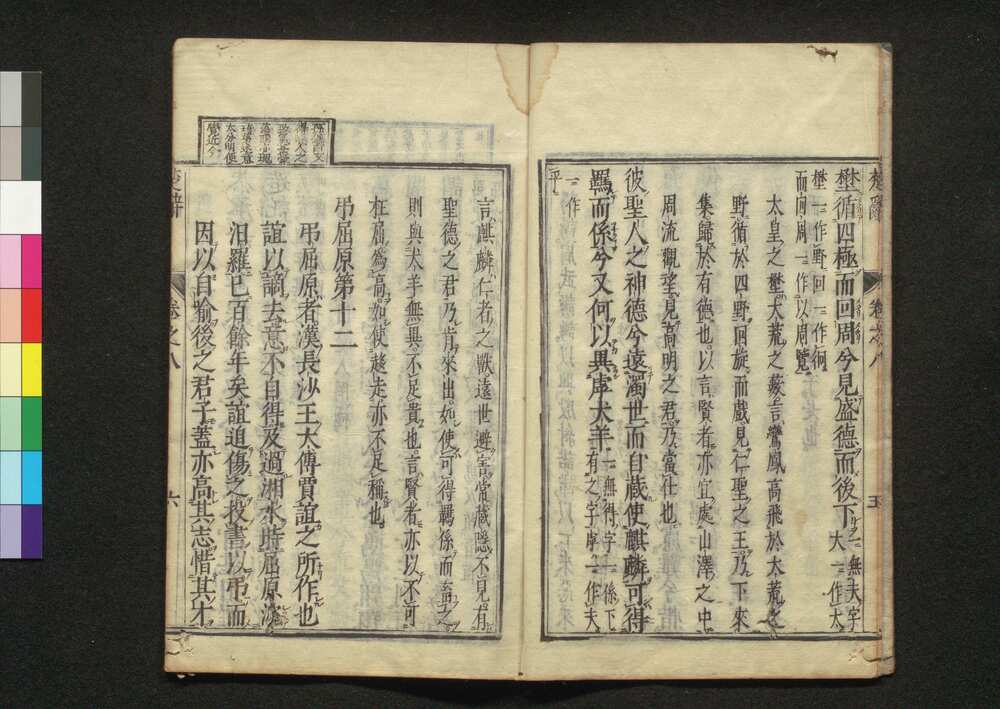 楚辭
卷之八
五
樊循四極而回周兮見盛德而後下
一無大字
大一作太
樊一作野回一作徊
而回周一作以周覽
太皇之樊大荒之藪言鸞鳳高飛於大荒之
野循於四野回旋而戲見仁聖之王乃下來
集歸於有德也以言賢者亦宜處山澤之中
周流觀望見高明之君乃當仕也
彼聖人之神德兮遠濁世而自藏使麒麟可得
羈而係兮又何以異虖犬羊
一無得字一係下
有之字虖一作夫
一作
乎
言麒麟仁者之獸遠世避害常藏隱不見有
聖德之君乃肯來出如使可得羈係而畜之
則與犬羊無異不足貴也言賢者亦以不可
枉屈為高如使趍走亦不足稱也
弔屈原第十二
弔屈原者漢長沙王太傅賈誼之所作也
誼以謫去意不自得及過湘水時屈原沈
汨羅已百餘年矣誼追傷之投書以弔而
因以自喻後之君子蓋亦高其志惜其才
楚辭
卷之八
六